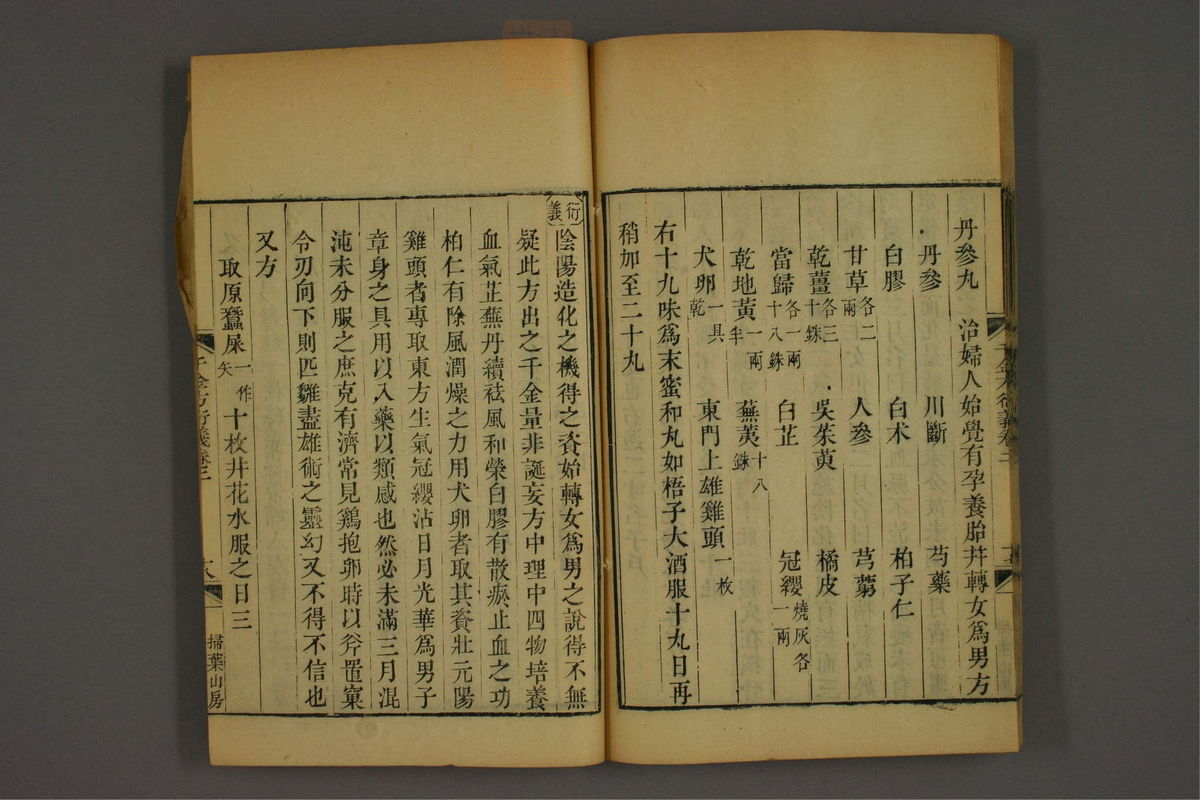 丹參丸　治婦人始覺有孕養胎幷轉女爲男方
丹參　川斷　芍藥
白膠　白术　柏子仁
甘草各二兩　人參　芎藭
乾薑各三十銖　吳茱萸　橘皮
當歸各一兩十八銖　白芷　冠纓燒灰各一兩
乾地黃一兩半　蕪荑十八銖
犬卵一具乾　東門上雄雞頭一枚
右十九味爲末蜜和丸如梧子大酒服十九日再
稍加至二十九
衍義
陰陽造化之機得之資始轉女爲男之說得不無
疑此方出之千金量非誕妄方中理中四物培養
血氣芷蕪丹續祛風和榮白膠有散瘀止血之功
柏仁有除風潤燥之力用犬卵者取其資壯元陽
雞頭者專取東方生氣冠纓沾日月光華爲男子
章身之具用以入藥以類感也然必未滿三月混
沌未分服之庶克有濟常見鷄抱卵時以斧置窠
令刃向下則匹雛盡雄術之靈幻又不得不信也
又方
取原蠶屎一作矢十枚井花水服之日三
千金方衍義卷二
掃葉山房